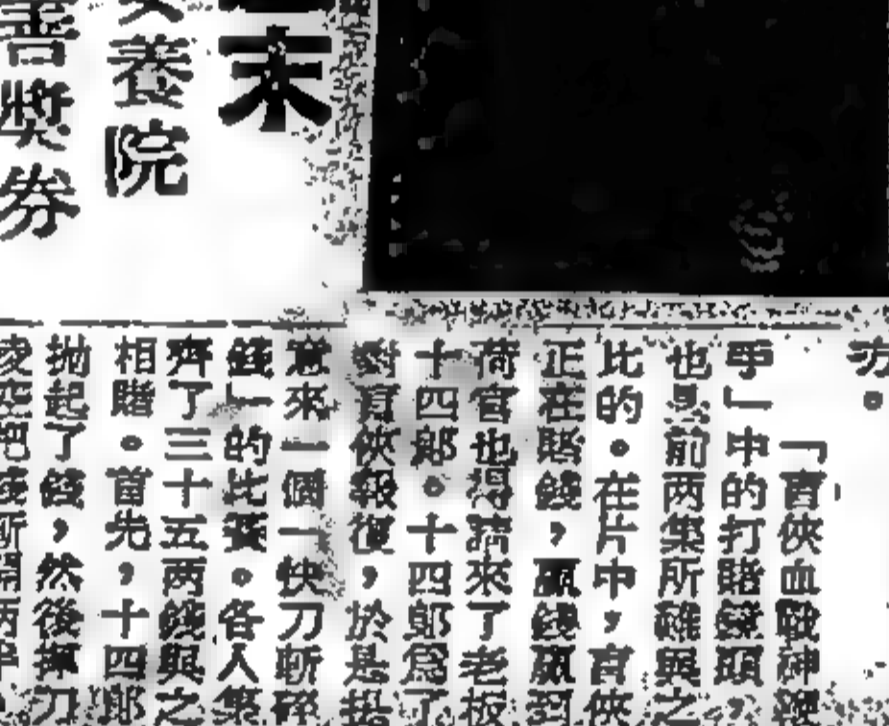 方。
「盲俠血戰神鞭
爭」中的打賭錢頭，
也是前两集所難與之
比的。在片中，盲俠
正在賭錢，贏錢贏到
荷官也得請來了老板
十四郞。十四郞爲了
對盲俠報復，於是提
意來一個一快刀斬碎
錢」的比賽。各人集
齊了三十五两錢與之
相賭。首先，十四郞
拋起了錢，然後揮刀
凌空把錢斬開两半
末
養院
善獎券